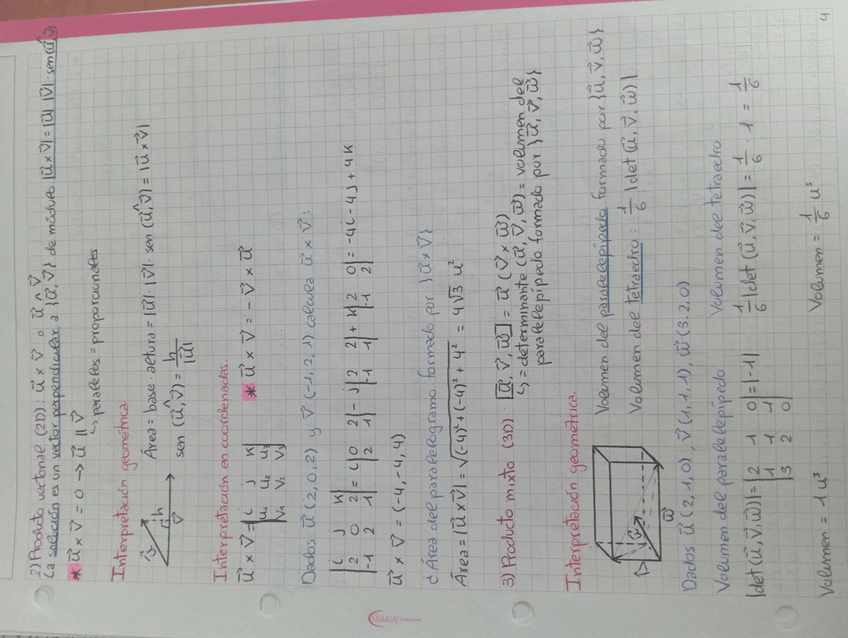 2) Producto vectorial (2D): u⃗ × v⃗ o u⃗ ∧ v⃗
La solución es un vector perpendicular a {u⃗, v⃗} de módulo |u⃗ × v⃗| = |u⃗| · |v⃗| · sen(u⃗, v⃗)
* u⃗ × v⃗ = 0 → u⃗ ∥ v⃗
↳ paralelos = proporcionales
Interpretación geométrica.
u⃗ h v⃗
Área = base · altura = |u⃗| · |v⃗| · sen (u⃗, v⃗) = |u⃗ × v⃗|
sen (u⃗, v⃗) = h/|u⃗|
Interpretación en coordenadas.
u⃗ × v⃗ = |i j k; u₁ u₂ u₃; v₁ v₂ v₃|
* u⃗ × v⃗ = - v⃗ × u⃗
Dados u⃗ (2, 0, 2) y v⃗ (-1, 2, 1) calcula u⃗ × v⃗:
|i j k; 2 0 2; -1 2 1| = i |0 2; 2 1| - j |2 2; -1 1| + k |2 0; -1 2| = -4i - 4j + 4k
u⃗ × v⃗ = (-4, -4, 4)
d Área del paralelogramo formado por {u⃗ × v⃗}
Área = |u⃗ × v⃗| = √(-4)² + (-4)² + 4² = 4√3 u²
3) Producto mixto (3D): [u⃗, v⃗, w⃗] = u⃗ (v⃗ × w⃗)
↳ = determinante (u⃗, v⃗, w⃗) = volumen del
paralelepípedo formado por {u⃗, v⃗, w⃗}
Interpretación geométrica.
Volumen del paralelepípedo formado por {u⃗, v⃗, w⃗}
Volumen del tetraedro: 1/6 |det (u⃗, v⃗, w⃗)|
v⃗ u⃗ w⃗
Dados u⃗ (2, 1, 0), v⃗ (1, 1, 1), w⃗ (3, 2, 0)
Volumen del paralelepípedo
|det (u⃗, v⃗, w⃗)| = |2 1 0; 1 1 1; 3 2 0| = |-1|
Volumen = 1 u³
Volumen del tetraedro
1/6 |det (u⃗, v⃗, w⃗)| = 1/6 · 1 = 1/6
Volumen = 1/6 u³
4